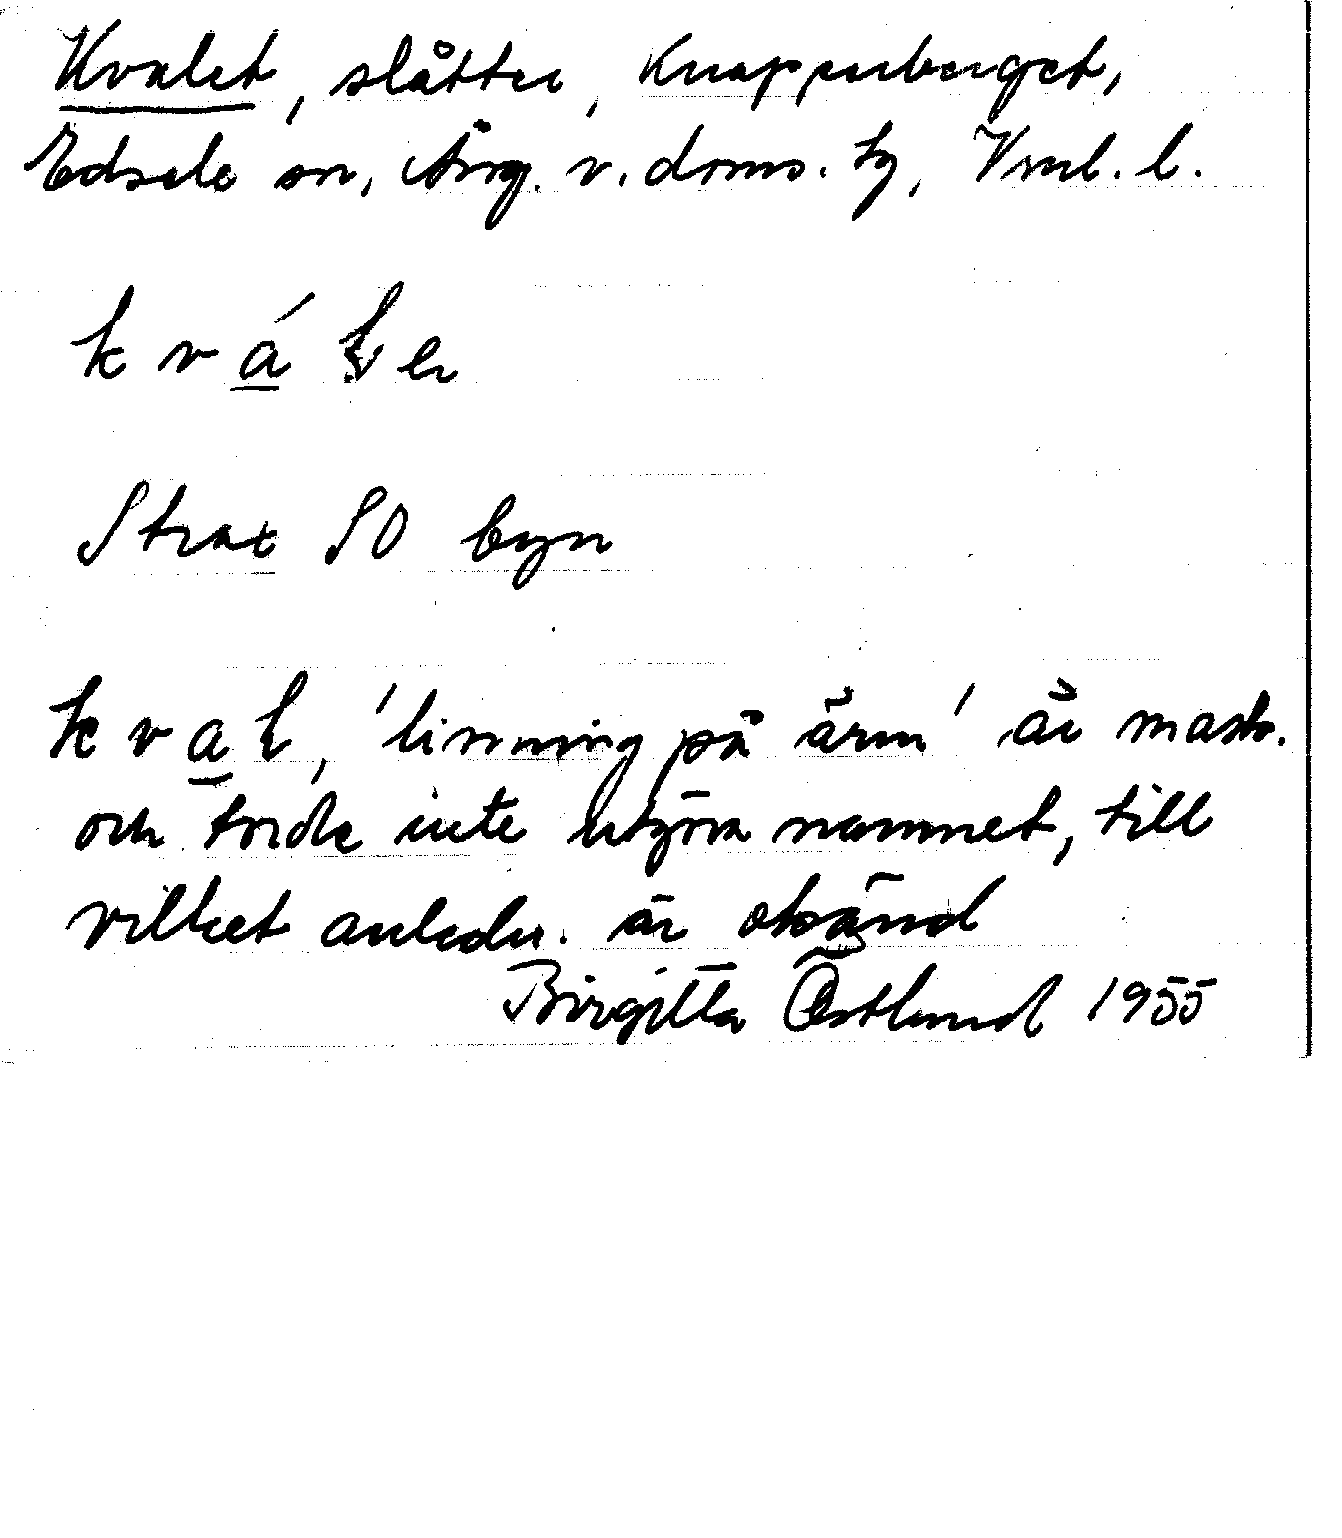 Kvalet, slåtter, Knapperberget,
Edsele sn, Ång. v. doms. tg, Vml. l.
Strax SO byn
kval, 'linning på ärm' är mask.
och torde inte utgöra namnet, till
vilket anledn. är okänd
Birgitta Östlund 1955